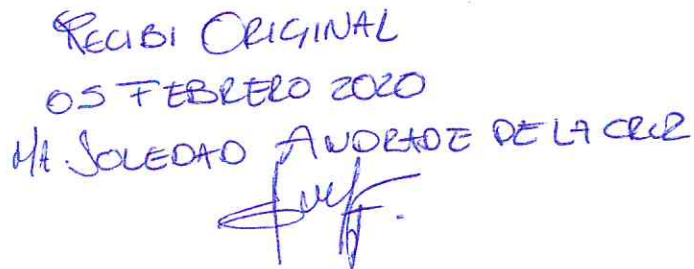 RECIBI ORIGINAL
05 FEBRERO 2020
MA. SOLEDAD ANDRADE DE LA CRUZ